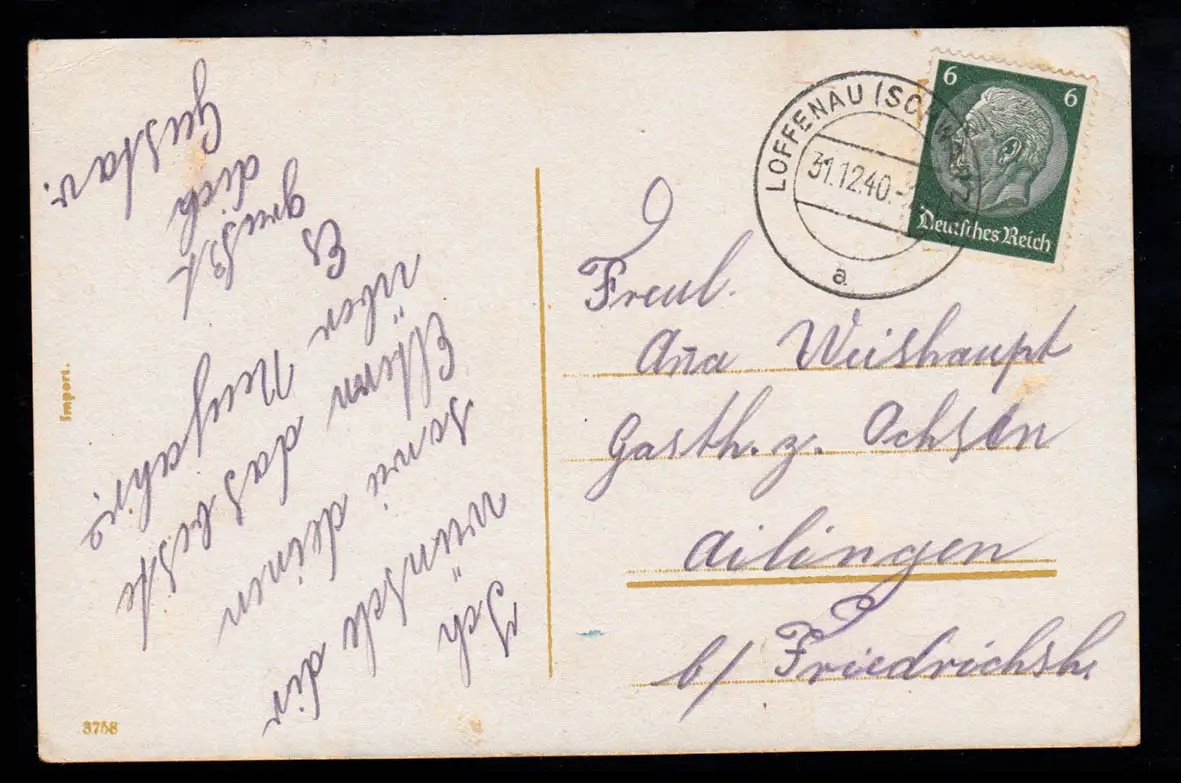 Ich
wünsche dir
sowie deinen
Eltern das beste
über Neujahr.
Es
grüßt
dich
Gustav.
Import.
3758
6 6
Deutsches Reich
LOFFENAU (SCHWARZW)
31.12.40.-
a
Freul.
Aña Weishaupt
Gasth. z. Ochsen
Ailingen
b/ Friedrichsh.